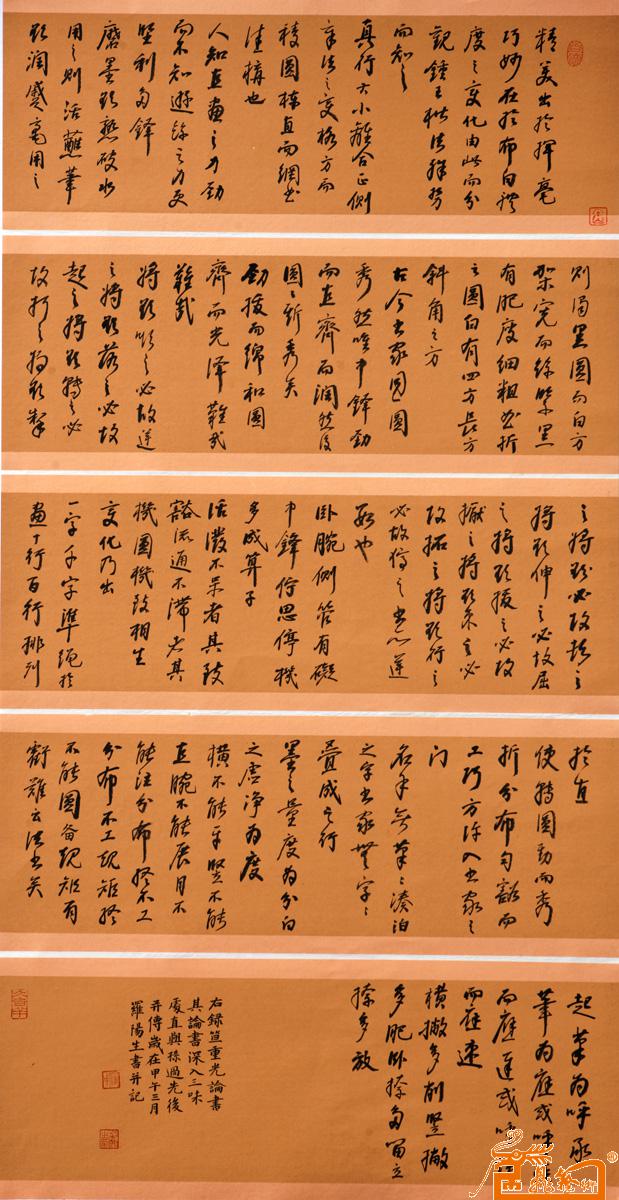 精美出於揮毫
巧妙在於布白體
度之變化由此而分
觀鍾王楷法殊勢
而知之
真行大小離合正側
章法之變格方而
棱圓棟直而綱書
佳構也
人知直畫之力勁
而不知遊絲之力更
堅利多鋒
磨墨欲熟破水
用之則活蘸筆
欲潤蹙毫用之
則濁黑圓而白方
架寬而絲緊黑
有肥瘦細粗書折
之圓白有四方長方
斜角之方
古今書家同圓
秀然唯中鋒勁
而直齊而潤然後
圓圓斯秀矣
勁拔而綿和圓
齊而光澤難哉
難哉
將欲順之必故逆
之將欲落之必故
起之將欲轉之必
故折之將欲掣
之將欲必故拮之
將欲伸之必故屈
之將欲拔之必故
擫之將欲束之必
故拓之將欲行之
必故停之書亦逆
數也
臥腕側管有礙
中鋒佇思停機
多成算子
活潑不呆者其致
豁流通不滯者其
機圓機致相生
變化乃出
一字千字準繩於
畫十行百行排列
於直
使轉圓勁而秀
折分布勻豁而
工巧方許入書家之
門
名手無筆筆湊泊
之字書家無字字
疊成之行
墨之量度為分白
之虛淨為度
橫不能平豎不能
直腕不能展目不
能注分布終不工
分布不工規矩終
不能圓備規矩有
虧難云法書矣
起筆為呼承
筆為應或呼疾
而應遲或呼
而應速
橫撇多削豎撇
多肥臥捺多留立
捺多放
右錄笪重光論書
其論書深入三味
處直與孫過先後
并傳歲在甲午三月
羅陽生書并記